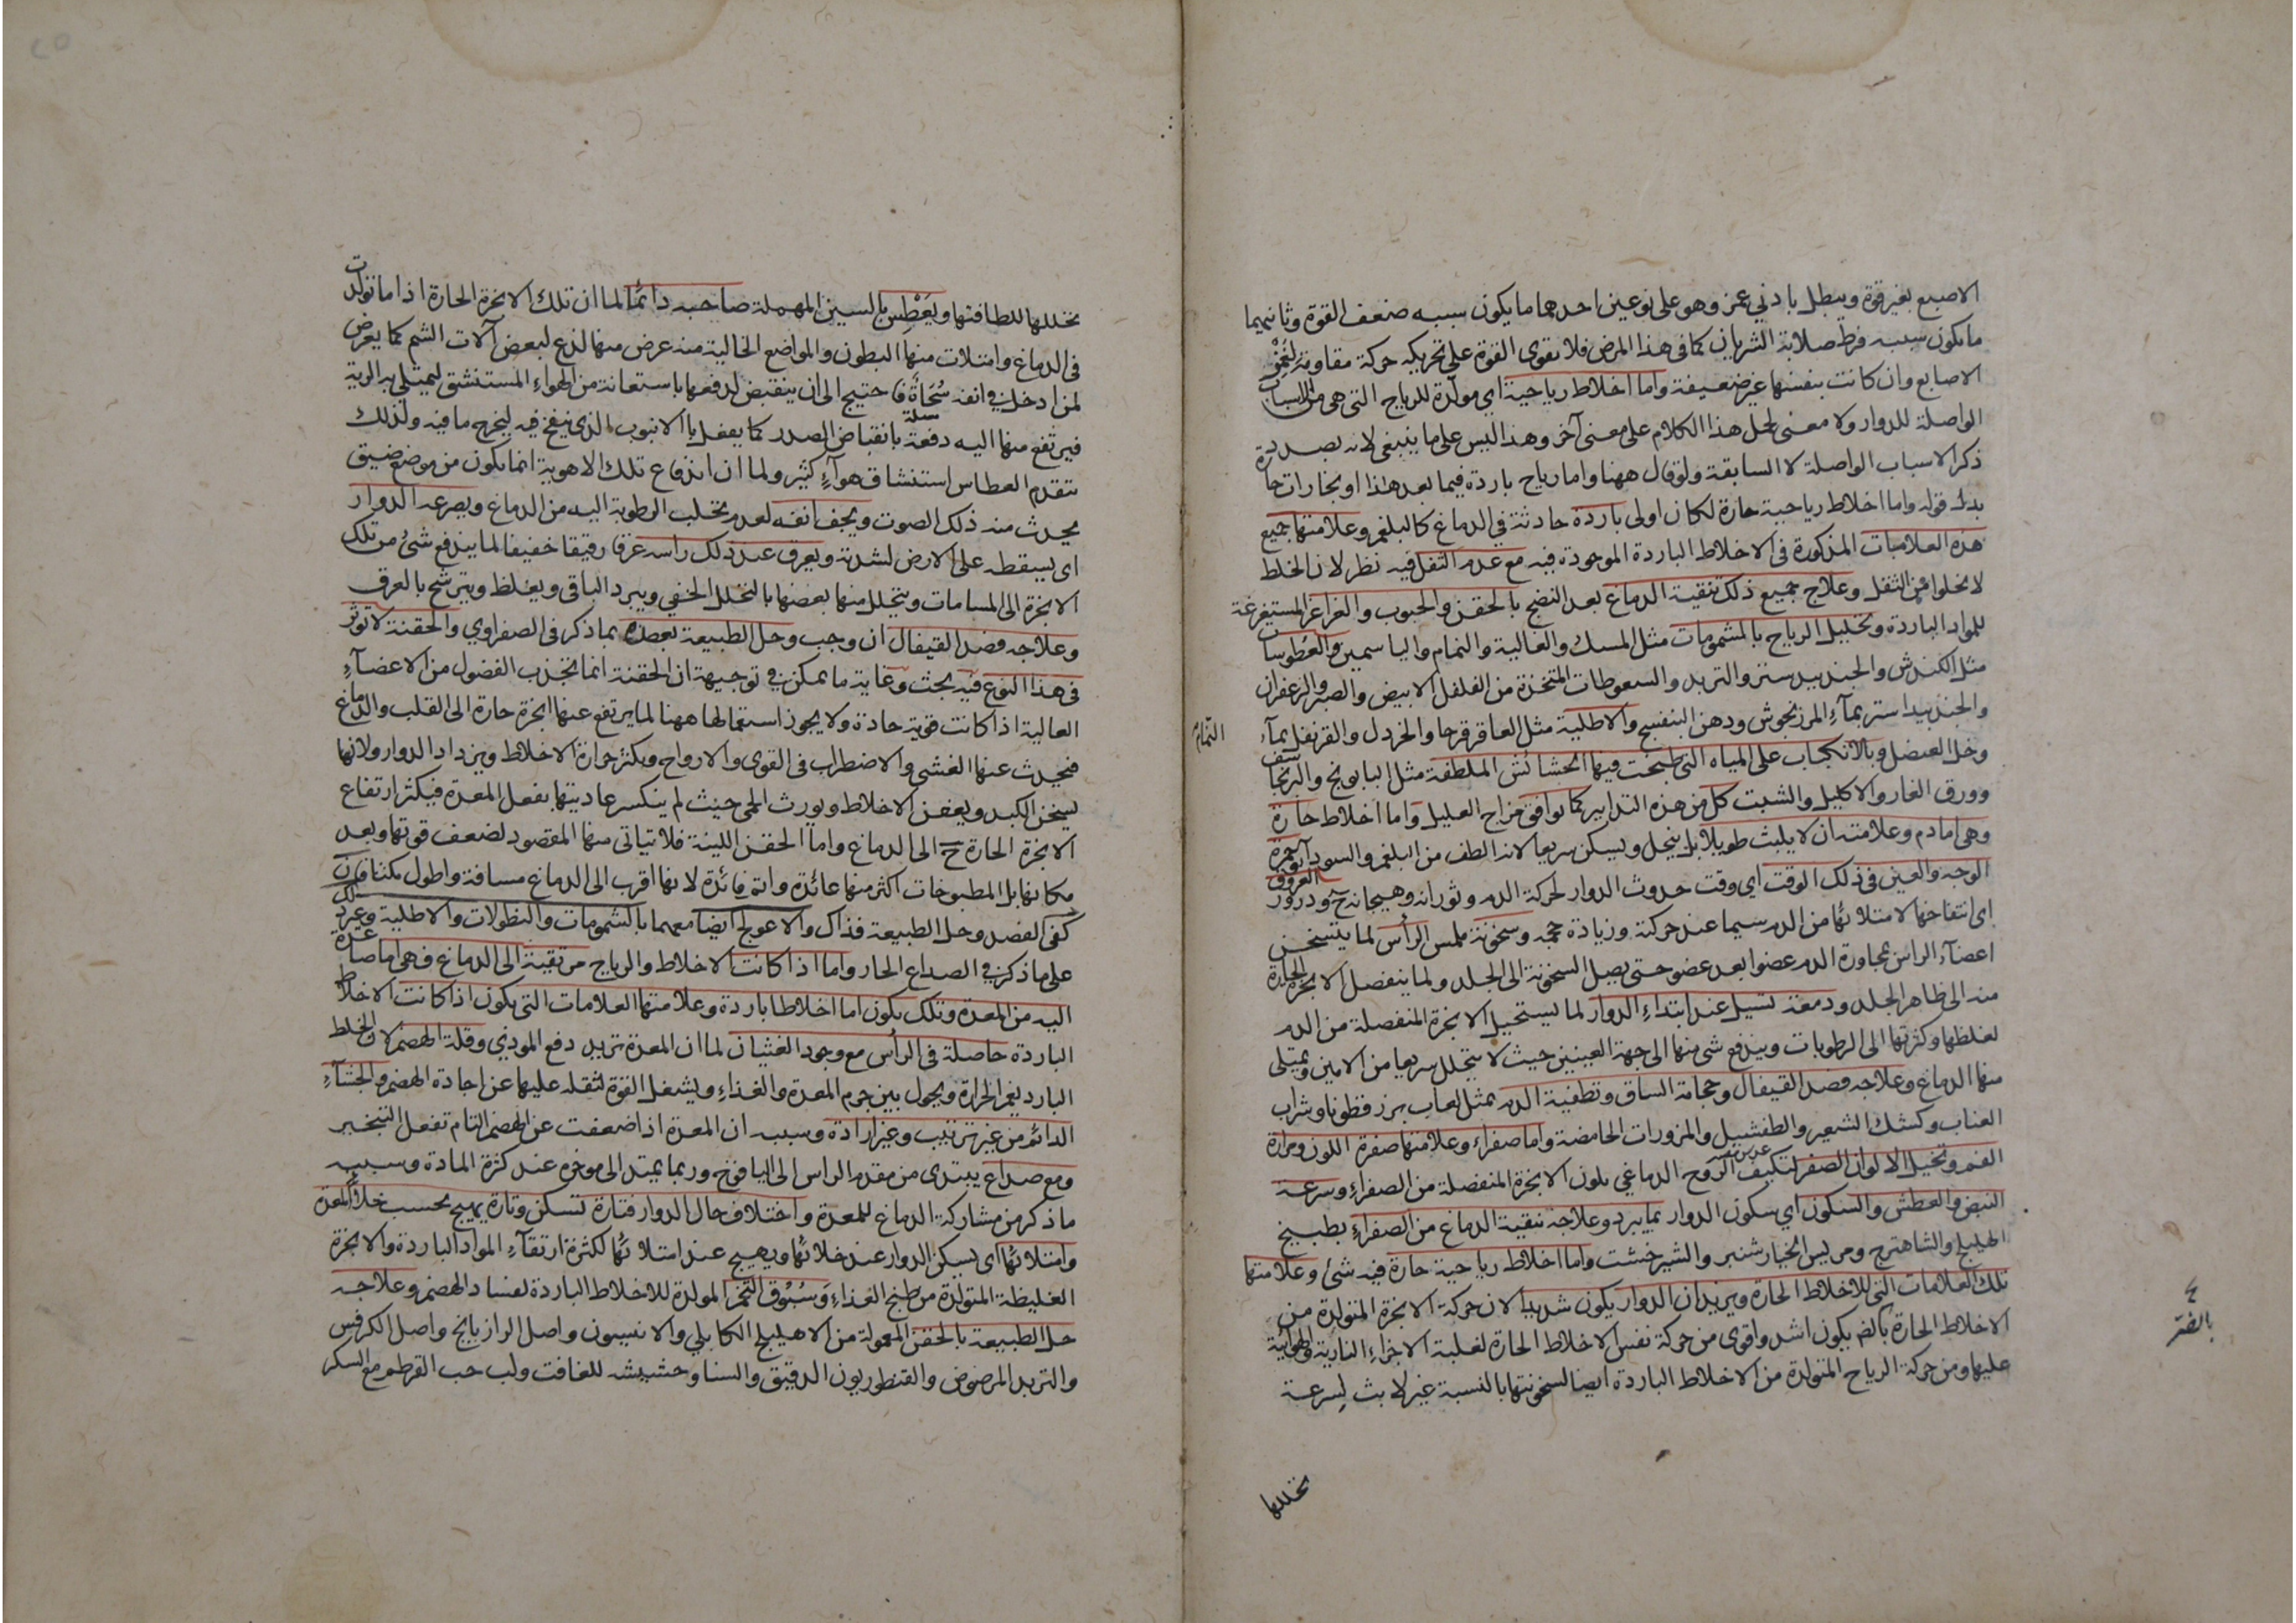 الاصبع بغير قوة ويبطل بادني غمز وهو على نوعين احدهما ما يكون سببه ضعف القوة وثانيهما
ما يكون سببه فرط صلابة الشريان كما في هذا المرض فلا يقوى القوة على تحريكه حركة مقاومة لغمز
الاصابع وان كانت بنفسها غير ضعيفة واما اخلاط رياحية اي مولدة للرياح التي هي من الاسباب
الواصلة للدوار ولا معنى لحمل هذا الكلام على معنى آخر وهذا ليس على ما ينبغي لانه بصدد
ذكر الاسباب الواصلة لا السابقة ولو قال ههنا واما رياح باردة فيما بعد هذا او بخارات حارة
بدل قوله واما اخلاط رياحية حارة لكان اولى باردة حادثة في الدماغ كالبلغم وعلامتها جميع
هذه العلامات المذكورة في الاخلاط الباردة الموجودة فيه مع عدم الثقل فيه نظر لان الخلط
لا يخلوا عن الثقل وعلاج جميع ذلك تنقية الدماغ بعد النضج بالحقن والحبوب والغراغر المستفرغة
للمواد الباردة وتحليل الرياح بالمشمومات مثل المسك والغالية والنمام والياسمين والعطوسات
مثل الكندش والجندبيدستر والتربد والسعوطات المتخذة من الفلفل الابيض والصبر والزعفران
والجندبيداستر بمآء المرزنجوش ودهن البنفسج والاطلية مثل العاقرقرحا والخردل والقرنفل بمآء
النمام
وخل العنصل وبالانكباب على المياه التي طبخت فيها الحشائش الملطفة مثل البابونج والبرنجاسف
وورق الغار والاكليل والشبت كل من هذه التدابير كما توافق مزاج العليل واما اخلاط حارة
وهي اما دم وعلامته ان لا يلبث طويلا بل ينحل ويسكن سريعا لانه الطف من البلغم والسودآء وحمرة
الوجه والعين في ذلك الوقت اي وقت حدوث الدوار لحركة الدم وثورانه وهيجانه ح ودرور العروق
اي انتفاخها لامتلائها من الدم سيما عند حركته وزيادة حجمه وسخونة ملمس الرأس لما يتسخن
اعضآء الراس بمجاورة الدم عضوا بعد عضو حتى يصل السخونة الى الجلد ولما ينفصل الابخرة الحارة
منه الى ظاهر الجلد ودمعة تسيل عند ابتداء الدوار لما يستحيل الابخرة المنفصلة من الدم
لغلظها وكثرتها الى الرطوبات ويندفع شي منها الى جهة العينين حيث لا يتحلل سريعا من الامين ويمتلى
منها الدماغ وعلاجه فصد القيفال وحجامة الساق وتطفية الدم بمثل لعاب بزرقطونا وشراب
العناب وكشك الشعير والطفشيل والمزورات الحامضة واما صفراء وعلامتها صفرة اللون ومرارة
الفم وتخيل الالوان الصفر لتكيف الروح الدماغي بلون الابخرة المنفصلة من الصفراء وسرعة
النبض والعطش والسكون اي سكون الدوار بما يبرد وعلاجه تنقية الدماغ من الصفراء بطبيخ
الهليلج والشاهترج ومريس الخيارشنبر والشيرخشت واما اخلاط رياحية حارة فيه شئ وعلامتها
تلك العلامات التي للاخلاط الحارة ويزيد ان الدوار يكون شديدا لان حركة الابخرة المتولدة من
الاخلاط الحارة بالضم يكون اشد واقوى من حركة نفس الاخلاط الحارة لغلبة الاجزاء النارية والهوائية
عليها ومن حركة الرياح المتولدة من الاخلاط الباردة ايضا لسخونتها بالنسبة غير لابث لسرعة
تحللها
تحللها للطافتها ويعطس بالسين المهملة صاحبه دائما لما ان تلك الابخرة الحارة اذا ما تولدت
في الدماغ وامتلات منها البطون والمواضع الخالية منه عرض منها لذع لبعض آلات الشم كما يعرض
لمن ادخل في انفه سحاة فاحتيج الى ان ينقبض لدفعها باستعانة من الهواء المستنشق ليمتلي به الرية
فيرتفع منها اليه دفعة بانقباض الصدر كما يفعل بالانبوب الذي ينفخ فيه ليخرج ما فيه ولذلك
يتقدم العطاس استنشاق هوآء كثير ولما ان اندفاع تلك الاهوية انما يكون من موضع ضيق
يحدث منه ذلك الصوت ويجف انفه لعدم تحلب الرطوبة اليه من الدماغ ويصرعه الدوار
اي يسقطه على الارض لشدته ويعرق عند ذلك راسه عرقا رقيقا خفيفا لما يندفع شئ من تلك
الابخرة الى المسامات ويتحلل منها بعضها بالتحلل الخفي ويبرد الباقي ويغلظ ويترشح بالعرق
وعلاجه فصد القيفال ان وجب وحل الطبيعة بعده بما ذكر في الصفراوي والحقنة لا توثر
في هذا النوع فيه بحث وغاية ما يمكن في توجيهه ان الحقنة انما تجذب الفضول من الاعضآء
العالية اذا كانت قوية حادة ولا يجوز استعمالها ههنا لما يرتفع عنها ابخرة حارة الى القلب والدماغ
فيحدث عنها الغشي والاضطراب في القوى والارواح ويكثر حرارة الاخلاط ويزداد الدوار ولانها
يسخن الكبد ويعفن الاخلاط ويورث الحمى حيث لم ينكسر عاديتها بفعل المعدة فيكثر ارتفاع
الابخرة الحارة ح الى الدماغ واما الحقن اللينة فلا يتاتى منها المقصود لضعف قوتها وبعد
مكانها بل المطبوخات اكثر منها عائدة واتم فائدة لانها اقرب الى الدماغ مسافة واطول مكثا فان
كفى الفصد وحل الطبيعة فذاك والا عولج ايضا معهما بالشمومات والنطولات والاطلية وغير ذلك
على ما ذكر في الصداع الحار واما اذا كانت الاخلاط والرياح مرتقية الى الدماغ فهي اما صاعدة
اليه من المعدة وتلك يكون اما اخلاطا باردة وعلامتها العلامات التي يكون اذا كانت الاخلاط
الباردة حاصلة في الرأس مع وجود الغثيان لما ان المعدة تريد دفع الموذي وقلة الهضم لان الخلط
البارد يغمر الحرارة ويحول بين جرم المعدة والغذاء ويشغل القوة لثقله عليها عن اجادة الهضم والجشآء
الدائم من غير ترتيب وغير ارادة وسببه ان المعدة اذا ضعفت عن الهضم التام تفعل التبخير
ومع صداع يبتدى من مقدم الراس الى اليافوخ وربما يمتد الى موخره عند كثرة المادة وسببه
ما ذكر من مشاركة الدماغ للمعدة واختلاف حال الدوار فتارة تسكن وتارة يهيج بحسب خلاء المعدة
وامتلائها اى يسكن الدوار عند خلائها ويهيج عند امتلائها لكثرة ارتقآء المواد الباردة والابخرة
الغليظة المتولدة من طبخ الغذاء وسبوق التخم المولدة للاخلاط الباردة لفساد الهضم وعلاجه
حل الطبيعة بالحقن المعمولة من الاهليلج الكابلي والانيسون واصل الرازيانج واصل الكرفس
والتربد المرضوض والقنطوريون الدقيق والسنا وحشيشه للغافت ولب حب القرطم مع السكر